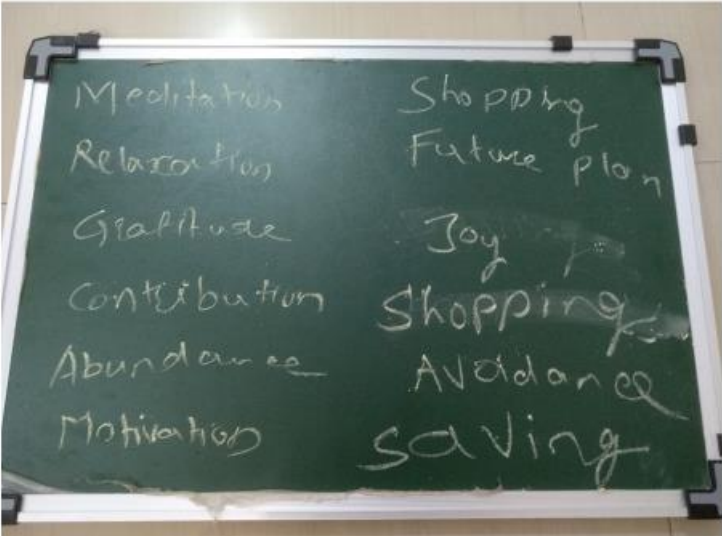 Meditation
Relaxation
Gratitude
Contribution
Abundance
Motivation
Shopping
Future Plan
Joy
Shopping
Avoidance
saving